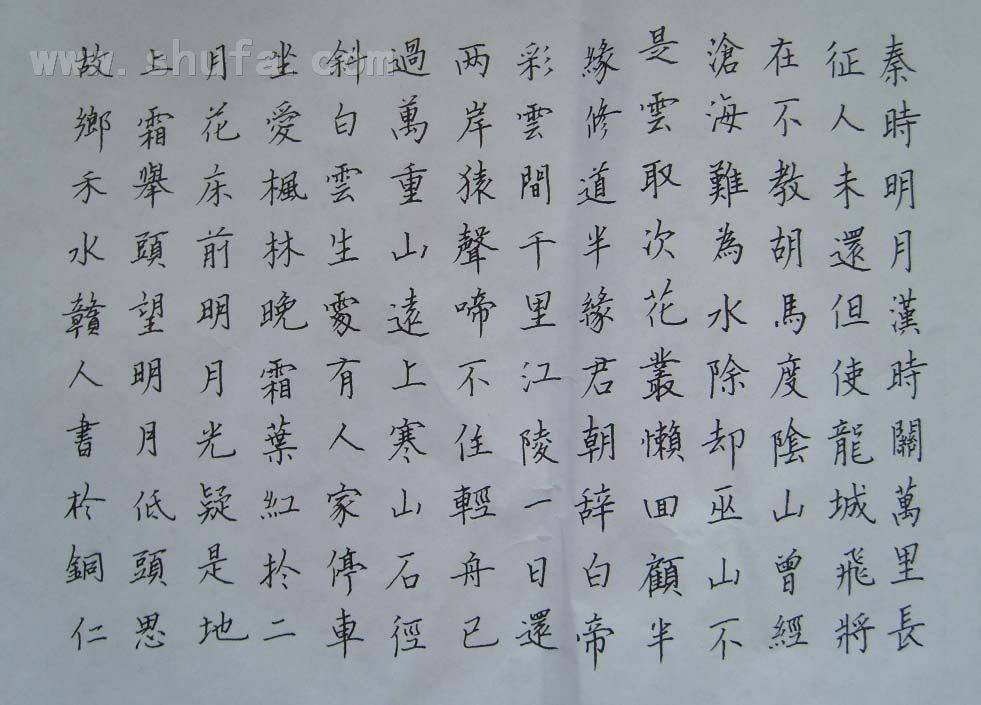 秦時明月漢時關萬里長
征人未還但使龍城飛將
在不教胡馬度陰山曾經
滄海難為水除却巫山不
是雲取次花叢懶囬顧半
緣修道半緣君朝辞白帝
彩雲間千里江陵一日還
两岸猿聲啼不住輕舟已
過萬重山遠上寒山石徑
斜白雲生處有人家停車
坐愛楓林晚霜葉紅於二
月花床前明月光疑是地
上霜舉頭望明月低頭思
故鄉禾水贛人書於銅仁